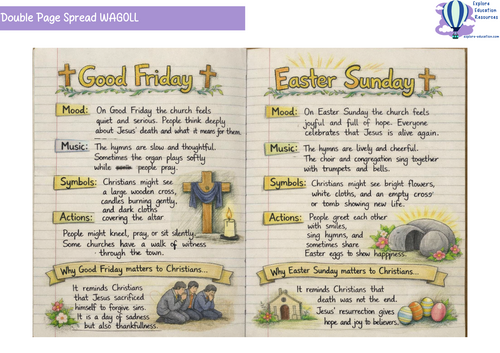 Double Page Spread WAGOLL
Explore
Education
Resources
explore-education.com
Good Friday
Mood: On Good Friday the church feels
quiet and serious. People think deeply
about Jesus' death and what it means for them.
Music: The hymns are slow and thoughtful.
Sometimes the organ plays softly
while people pray.
Symbols: Christians might see
a large wooden cross,
candles burning gently,
and dark cloths
Actions: covering the altar.
People might kneel, pray, or sit silently.
Some churches have a walk of witness
through the town.
Why Good Friday matters to Christians...
It reminds Christians
that Jesus sacrificed
himself to forgive sins.
It is a day of sadness
but also thankfulness.
Easter Sunday
Mood: On Easter Sunday the church feels
joyful and full of hope. Everyone
celebrates that Jesus is alive again.
Music: The hymns are lively and cheerful.
The choir and congregation sing together
with trumpets and bells.
Symbols: Christians might see bright flowers,
white cloths, and an empty cross
or tomb showing new life.
Actions: People greet each other
with smiles,
sing hymns, and
sometimes share
Easter eggs to show happiness.
Why Easter Sunday matters to Christians...
It reminds Christians that
death was not the end.
Jesus' resurrection gives
hope and joy to believers.